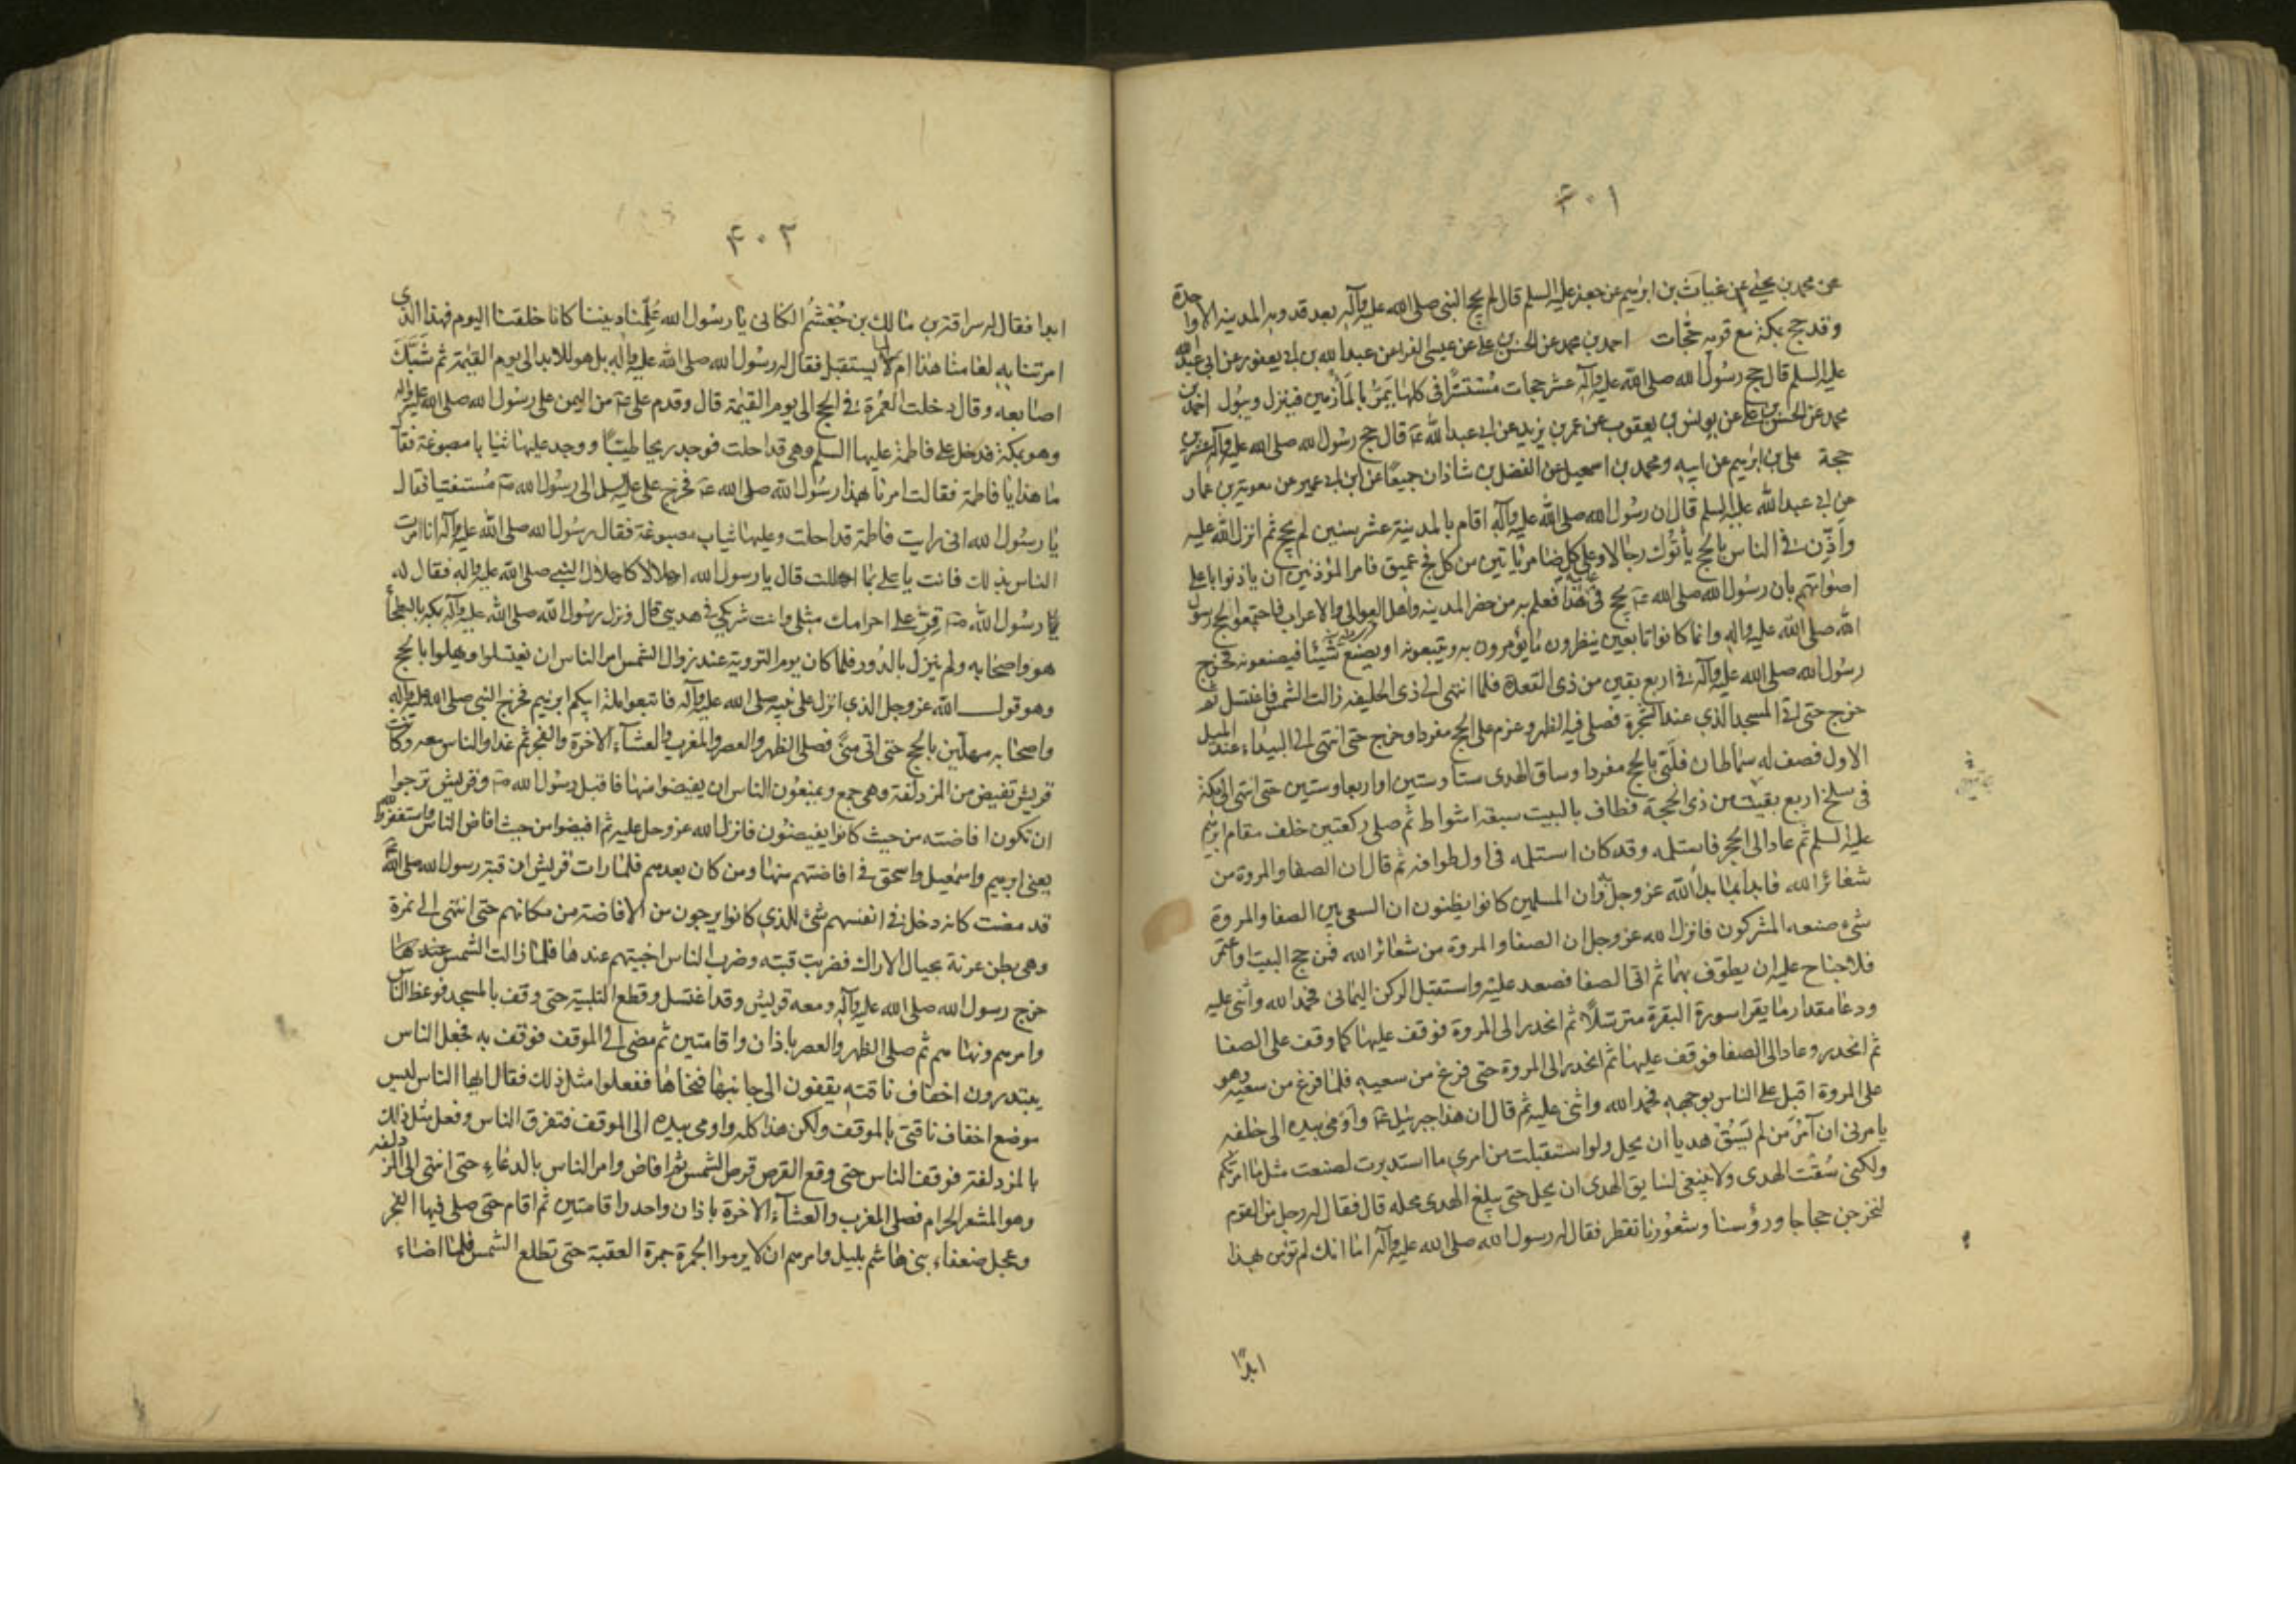 ۴۰۱
عن محمد بن يحيى عن غياث بن ابرهيم عن جعفر عليه السلم قال لم يحج النبي صلى الله عليه وآله بعد قدومه المدينة الا واحدة
وقد حج بمكة مع قومه حجات احمد بن محمد عن الحسن بن علي عن عيسى الفرا عن عبد الله بن ابي يعفور عن ابي عبد الله
عليه السلم قال حج رسول الله صلى الله عليه وآله عشر حجات مستترا في كلها يمر بالمأزمين فينزل ويبول احمد بن
محمد عن الحسن بن علي عن يونس بن يعقوب عن عمر بن يزيد عن ابي عبد الله عۤ قال حج رسول الله صلى الله عليه وآله عشرين
حجة علي بن ابرهيم عن ابيه ومحمد بن اسمعيل عن الفضل بن شاذان جميعا عن ابن ابي عمير عن معوية بن عمار
عن ابي عبد الله عليه السلم قال ان رسول الله صلى الله عليه وآله اقام بالمدينة عشر سنين لم يحج ثم انزل الله عليه
واذن في الناس بالحج يأتوك رجالا وعلى كل ضامر ياتين من كل فج عميق فامر المؤذنين ان ياذنوا باعلى
اصواتهم بان رسول الله صلى الله عۤ يحج في عامه هذا فعلم به من حضر المدينة واهل العوالي والاعراب فاجتمعوا لحج رسول
الله صلى الله عليه واله وانما كانوا تابعين ينظرون ما يؤمرون به ويتبعونه او يصنع شيئا فيصنعونه فخرج
رسول الله صلى الله عليه وآله في اربع بقين من ذي القعدة فلما انتهى الى ذي الحليفة زالت الشمس فاغتسل ثم
خرج حتى اتى المسجد الذي عند الشجرة فصلى فيه الظهر وعزم على الحج مفردا وخرج حتى انتهى الى البيداء عند الميل
الاول فصف له سماطان فلبى بالحج مفردا وساق الهدى ستا وستين او اربعا وستين حتى انتهى الى مكة
في سلخ اربع بقيت من ذي الحجة فطاف بالبيت سبعة اشواط ثم صلى ركعتين خلف مقام ابرهيم
عليه السلم ثم عاد الى الحجر فاستلمه وقد كان استلمه في اول طوافه ثم قال ان الصفا والمروة من
شعائر الله فابدأ بما بدأ الله عز وجل به وان المسلمين كانوا يظنون ان السعي بين الصفا والمروة
شيء صنعه المشركون فانزل الله عز وجل ان الصفا والمروة من شعائر الله فمن حج البيت او اعتمر
فلا جناح عليه ان يطوف بهما ثم اتى الصفا فصعد عليه واستقبل الركن اليماني فحمد الله واثنى عليه
ودعا مقدار ما يقرا سورة البقرة مترسلا ثم انحدر الى المروة فوقف عليها كما وقف على الصفا
ثم انحدر وعاد الى الصفا فوقف عليها ثم انحدر الى المروة حتى فرغ من سعيه فلما فرغ من سعيه وهو
على المروة اقبل على الناس بوجهه فحمد الله واثنى عليه ثم قال ان هذا جبرئيل عۤ واومى بيده الى خلفه
يامرني ان آمر من لم يسق هديا ان يحل ولو استقبلت من امري ما استدبرت لصنعت مثل ما امرتكم
ولكني سقت الهدى ولا ينبغي لسايق الهدى ان يحل حتى يبلغ الهدى محله قال فقال له رجل من القوم
لنخرجن حجاجا ورؤسنا وشعورنا تقطر فقال له رسول الله صلى الله عليه وآله اما انك لم تؤمن بهذا
ابدًا
۴۰۲
ابدا فقال له سراقة بن مالك بن جعشم الكناني يا رسول الله علمنا ديننا كانا خلقنا اليوم فهذا الذي
امرتنا به لعامنا هذا ام لما يستقبل فقال له رسول الله صلى الله عليه وآله بل هو للابد الى يوم القيمة ثم شبك
اصابعه وقال دخلت العمرة في الحج الى يوم القيمة قال وقدم علي عۤ من اليمن على رسول الله صلى الله عليه واله
وهو بمكة فدخل على فاطمة عليها السلم وهي قد احلت فوجد ريحا طيبا ووجد عليها ثيابا مصبوغة فقال
ما هذا يا فاطمة فقالت امرنا بهذا رسول الله صلى الله عۤ فخرج علي عليه السلم الى رسول الله صۤ مستفتيا فقال
يا رسول الله اني رايت فاطمة قد احلت وعليها ثياب مصبوغة فقال رسول الله صلى الله عليه وآله انا امرت
الناس بذلك فانت يا علي بما اهللت قال يا رسول الله اهلالا كاهلال النبي صلى الله عليه واله فقال له
رسول الله صۤ قر على احرامك مثلي وانت شريكي في هديي قال ونزل رسول الله صلى الله عليه وآله بمكة بالبطحأ
هو واصحابه ولم ينزل بالدور فلما كان يوم التروية عند زوال الشمس امر الناس ان يغتسلوا ويهلوا بالحج
وهو قول الله عز وجل الذي انزل على نبيه صلى الله عليه وآله فاتبعوا ملة ابيكم ابرهيم فخرج النبي صلى الله عليه واله
واصحابه مهلين بالحج حتى اتى منى فصلى الظهر والعصر والمغرب والعشآء الاخرة والفجر ثم غدا والناس معه وكانت
قريش تفيض من المزدلفة وهي جمع ويمنعون الناس ان يفيضوا منها فاقبل رسول الله صۤ وقريش ترجوا
ان تكون افاضته من حيث كانوا يفيضون فانزل الله عز وجل عليه ثم افيضوا من حيث افاض الناس واستغفروا الله
يعني ابرهيم واسمعيل واسحق في افاضتهم منها ومن كان بعدهم فلما رات قريش ان قبة رسول الله صلى الله عۤ
قد مضت كانه دخل في انفسهم شئ للذي كانوا يرجون من الافاضة من مكانهم حتى انتهى الى نمرة
وهي بطن عرنة بحيال الاراك فضربت قبته وضرب الناس اخبيتهم عندها فلما زالت الشمس عندها
خرج رسول الله صلى الله عليه وآله ومعه قريش وقد اغتسل وقطع التلبية حتى وقف بالمسجد فوعظ الناس
وامرهم ونهاهم ثم صلى الظهر والعصر باذان واقامتين ثم مضى الى الموقف فوقف به فجعل الناس
يبتدرون اخفاف ناقته يقفون الى جانبها فنحاها ففعلوا مثل ذلك فقال ايها الناس ليس
موضع اخفاف ناقتي بالموقف ولكن هذا كله واومى بيده الى الموقف فتفرق الناس وفعل مثل ذلك
بالمزدلفة فوقف الناس حتى وقع القرص قرص الشمس ثم افاض وامر الناس بالدعاء حتى انتهى الى المزدلفة
وهو المشعر الحرام فصلى المغرب والعشآء الاخرة باذان واحد واقامتين ثم اقام حتى صلى فيها الفجر
وعجل ضعفاء بني هاشم بليل وامرهم ان لا يرموا الجمرة جمرة العقبة حتى تطلع الشمس فلما اضاء